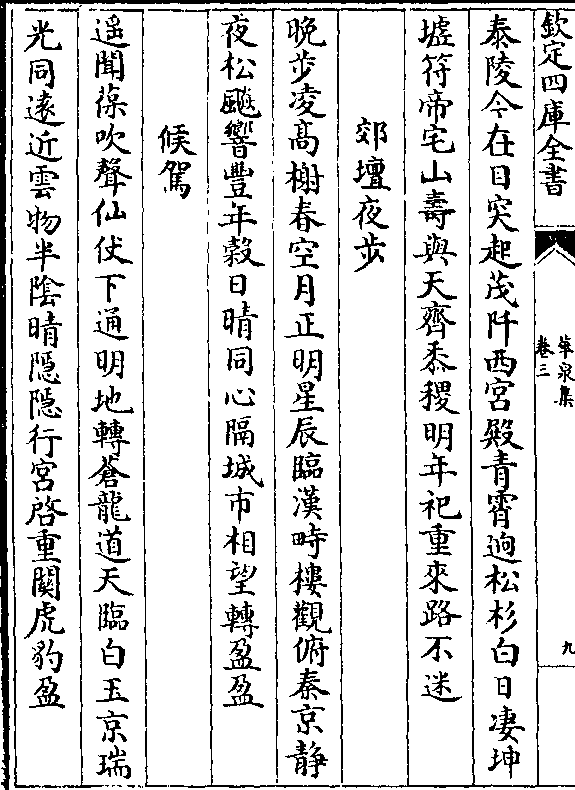 欽定四庫全書
華泉集
卷三
九
泰陵今在目突起茂阡西宮殿青霄逈松杉白日淒坤
墟符帝宅山壽與天齊黍稷明年祀重來路不迷
郊壇夜步
晚步凌髙榭春空月正明星辰臨漢畤樓觀俯秦京靜
夜松飈響豐年穀日晴同心隔城市相望轉盈盈
候駕
遥聞葆吹聲仙仗下通明地轉蒼龍道天臨白玉京瑞
光同遠近雲物半陰晴隠隠行宮啓重闗虎豹盈